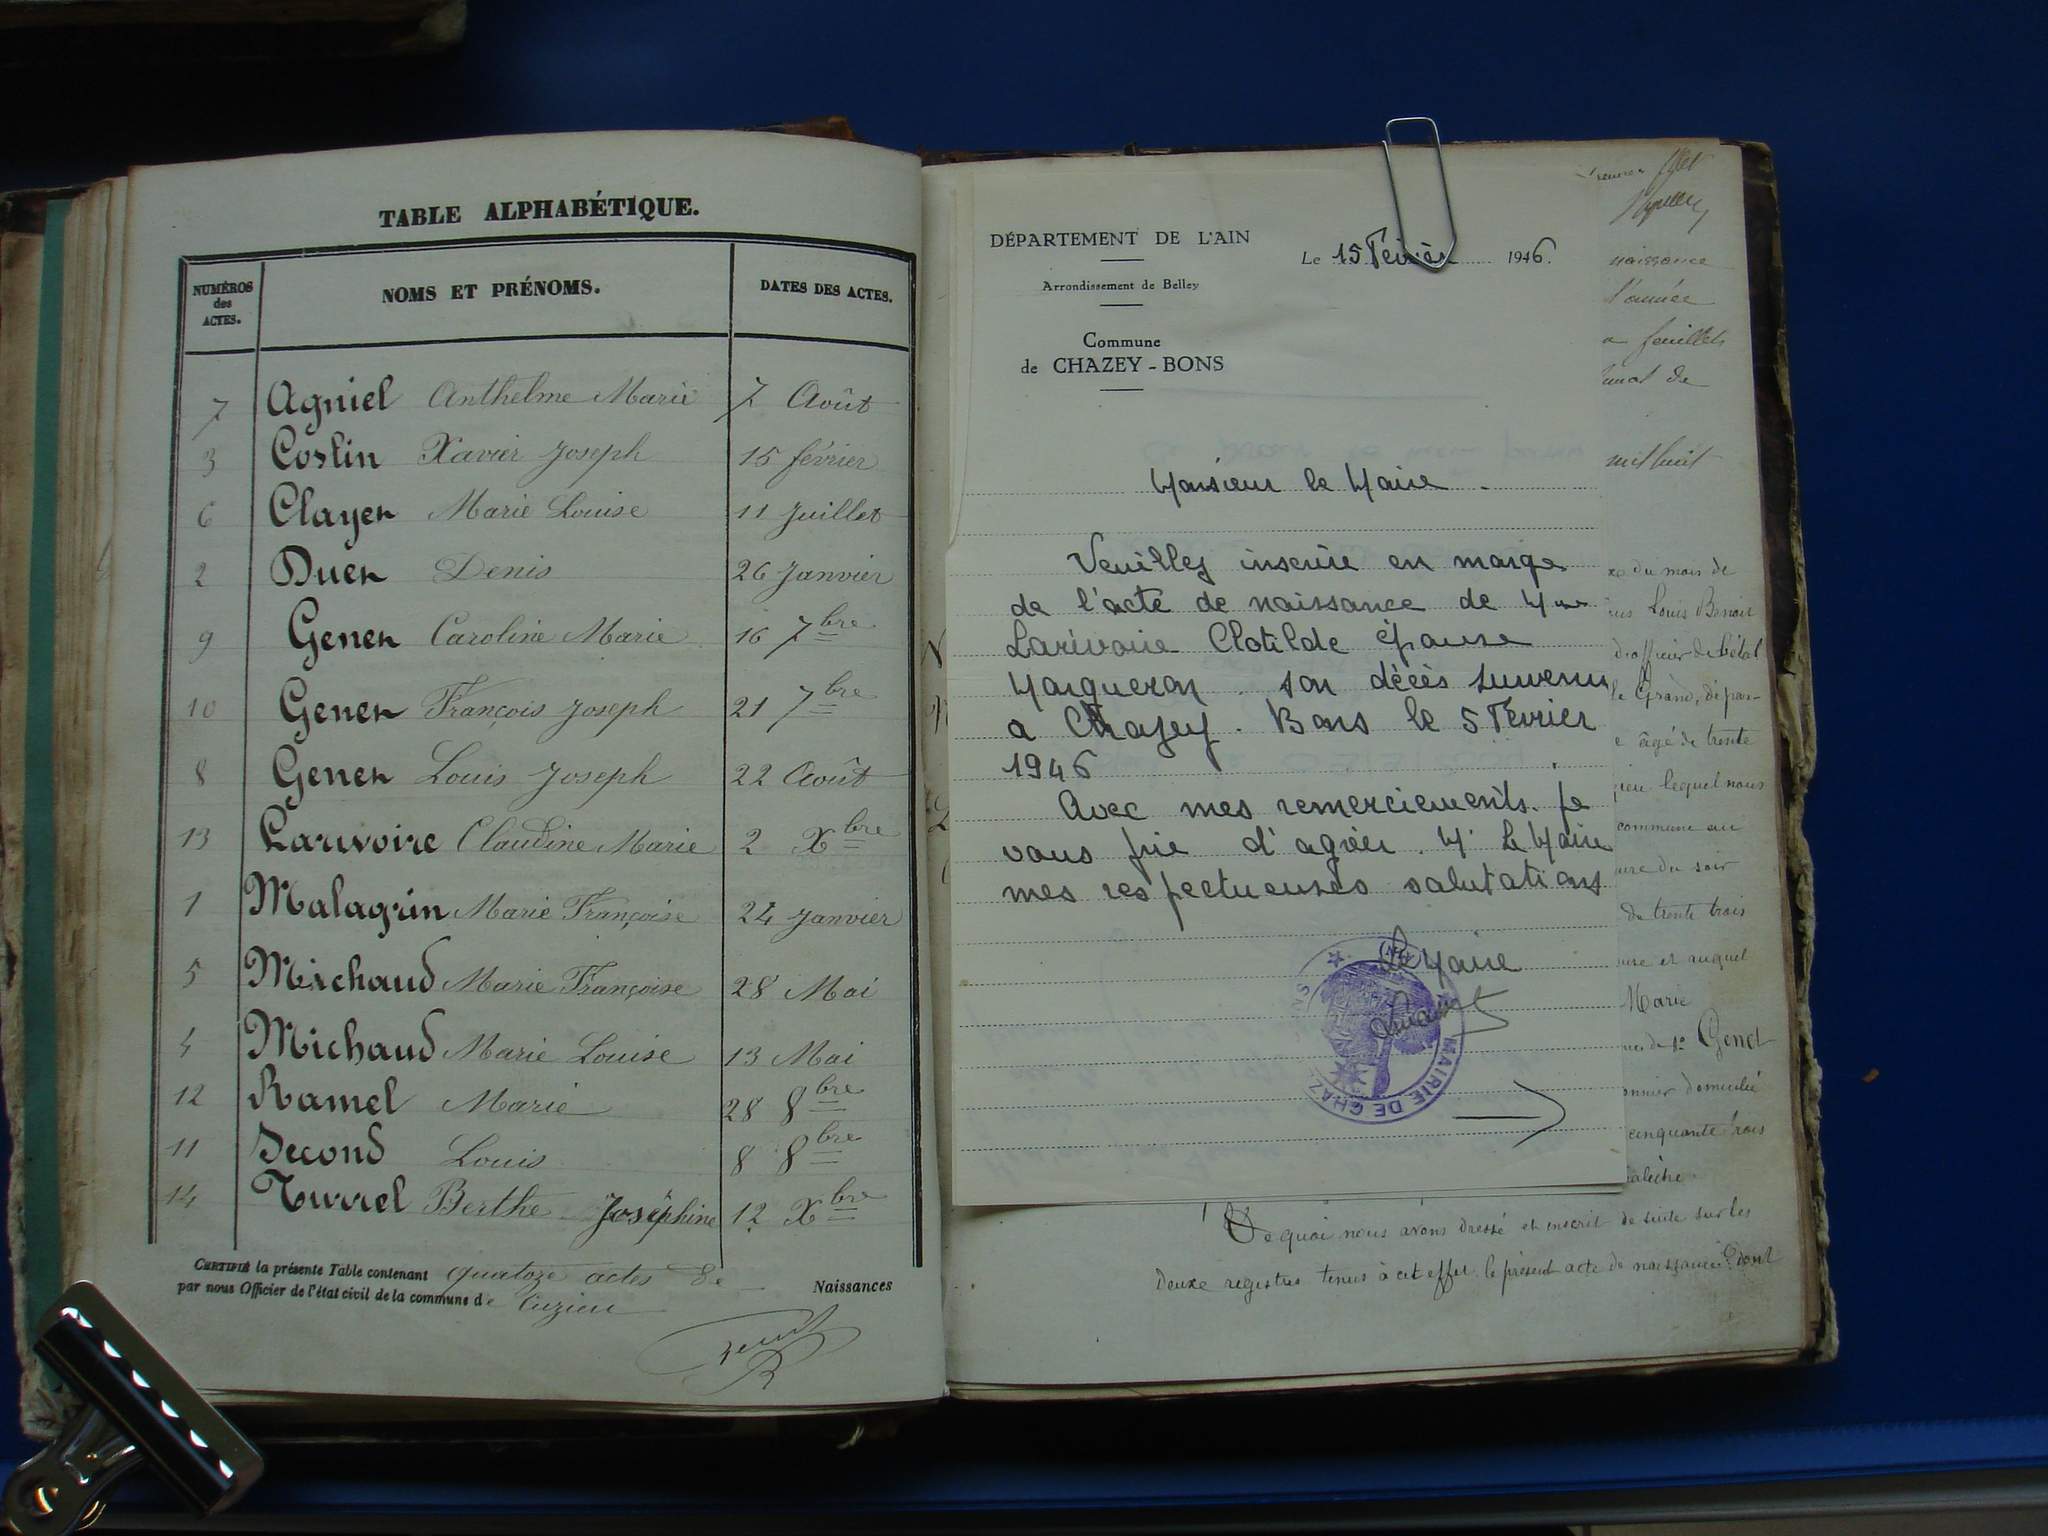 TABLE ALPHABÉTIQUE.
NUMÉROS des ACTES. NOMS ET PRÉNOMS. DATES DES ACTES.
7 Agniel Anthelme Marie 7 Août
3 Coslin Xavier Joseph 15 février
6 Clayer Marie Louise 11 Juillet
2 Duer Denis 26 Janvier
9 Gener Caroline Marie 16 7bre
10 Gener François Joseph 21 7bre
8 Gener Louis Joseph 22 Août
13 Larivoire Claudine Marie 2 Xbre
1 Malagrin Marie Françoise 24 Janvier
5 Michaud Marie Françoise 28 Mai
4 Michaud Marie Louise 13 Mai
12 Ramel Marie 28 8bre
11 Second Louis 8 8bre
14 Turrel Berthe Joséphine 12 Xbre
CERTIFIÉ la présente Table contenant quatoze actes de Naissances
par nous Officier de l'état civil de la commune de Cuzieu
DÉPARTEMENT DE L'AIN
Le 15 Février 1946.
Arrondissement de Belley
Commune
de CHAZEY - BONS
Monsieur le Maire
Veuillez inscrire en marge
de l'acte de naissance de Mme
Larivoire Clotilde épouse
Marqueron son décès survenu
a Chazey. Bons le 5 Février
1946
Avec mes remerciements. je
vous prie d'agréer. M. Le Maire
mes respectueuses salutations
Le Maire
MAIRIE DE CHAZ NS
naissance
l'année
feuillets
mil huit
du mois de
Louis Benoit
d'officier de l'état
le Grand, dépar-
âgé de trente
lequel nous
commune au
du soir
de trente trois
et auquel
Marie
Genet
domicilié
cinquante trois
De quoi nous avons dressé et inscrit de suite sur les
Deuxe registres tenus à cet effet le présent acte de naissance dont